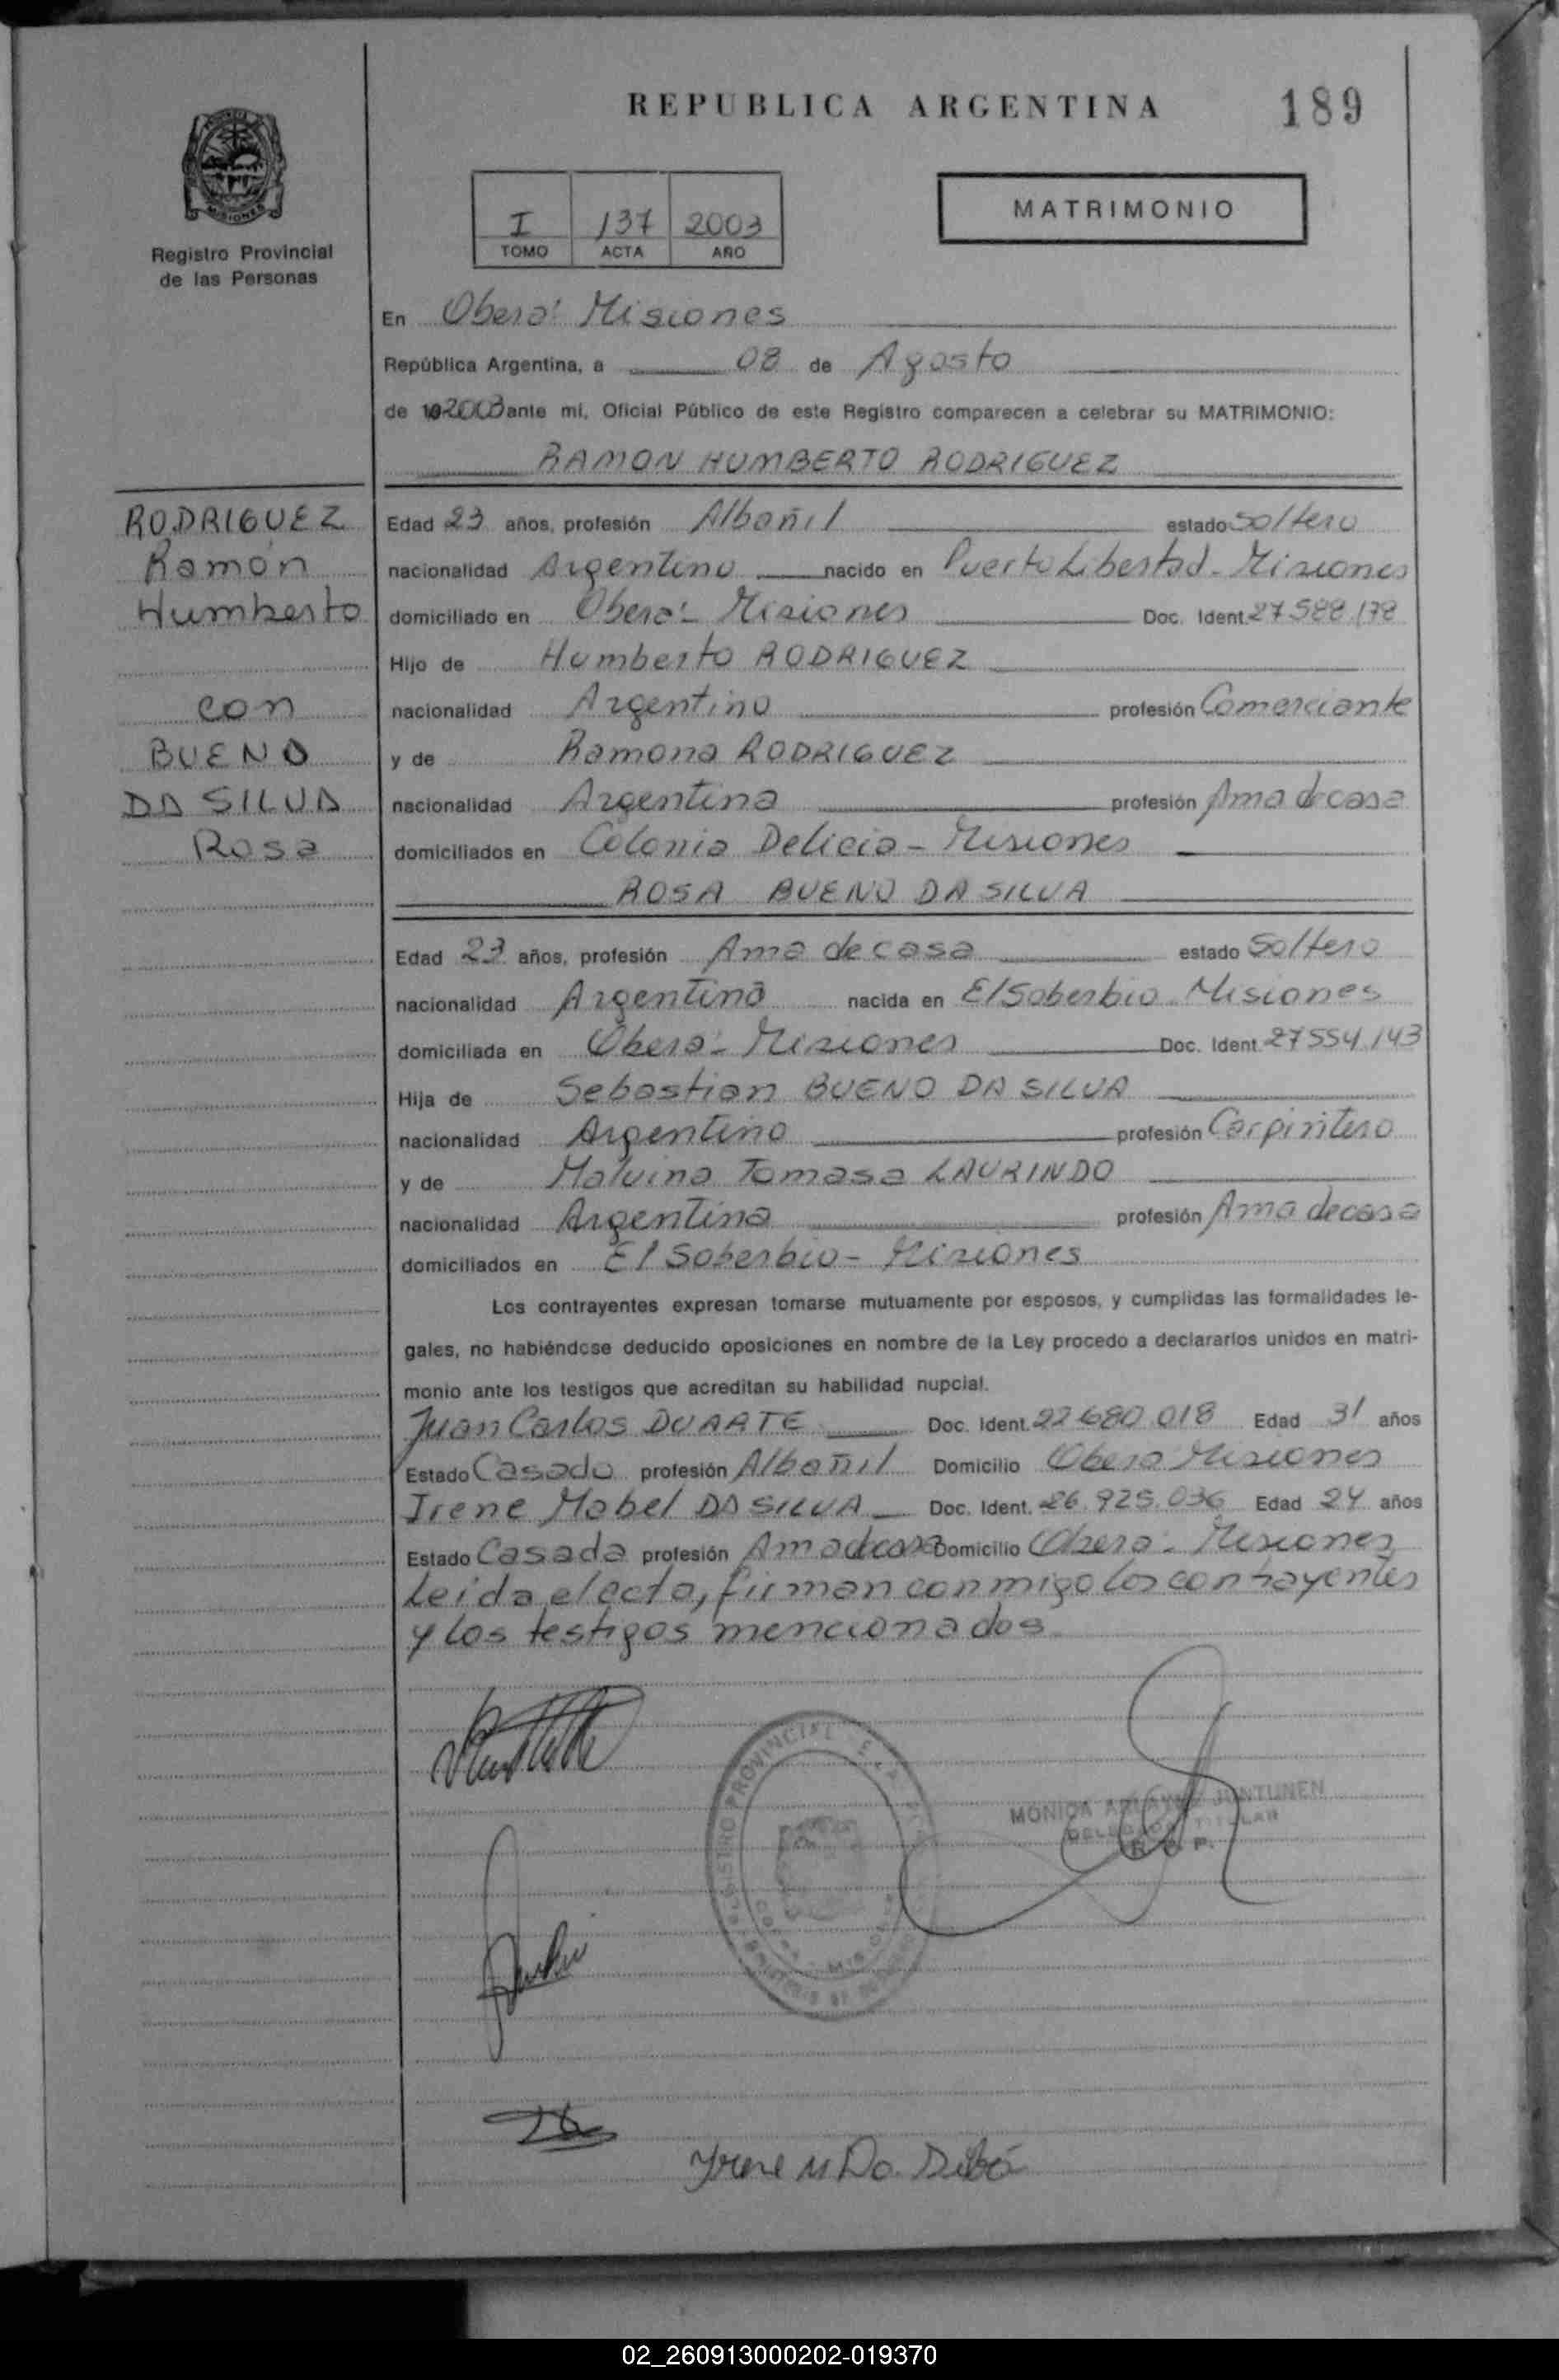 REPUBLICA ARGENTINA
189
MISIONES
Registro Provincial
de las Personas
I 137 2003
TOMO ACTA AÑO
MATRIMONIO
En Oberá Misiones
República Argentina, a 08 de Agosto
de 2003 ante mí, Oficial Público de este Registro comparecen a celebrar su MATRIMONIO:
RAMON HUMBERTO RODRIGUEZ
RODRIGUEZ
Ramón
Humberto
con
BUENO
DA SILVA
Rosa
Edad 23 años, profesión Albañil estado soltero
nacionalidad Argentino nacido en Puerto Libertad - Misiones
domiciliado en Oberá - Misiones Doc. Ident. 27.588.178
Hijo de Humberto RODRIGUEZ
nacionalidad Argentino profesión Comerciante
y de Ramona RODRIGUEZ
nacionalidad Argentina profesión Ama de casa
domiciliados en Colonia Delicia - Misiones
ROSA BUENO DA SILVA
Edad 23 años, profesión Ama de casa estado Soltero
nacionalidad Argentina nacida en El Soberbio Misiones
domiciliada en Oberá - Misiones Doc. Ident. 27554.143
Hija de Sebastian BUENO DA SILVA
nacionalidad Argentino profesión Carpintero
y de Malvina Tomasa LAURINDO
nacionalidad Argentina profesión Ama de casa
domiciliados en El Soberbio - Misiones
Los contrayentes expresan tomarse mutuamente por esposos, y cumplidas las formalidades le-
gales, no habiéndose deducido oposiciones en nombre de la Ley procedo a declararlos unidos en matri-
monio ante los testigos que acreditan su habilidad nupcial.
Juan Carlos DUARTE Doc. Ident. 22.680.018 Edad 31 años
Estado Casado profesión Albañil Domicilio Oberá Misiones
Irene Mabel DA SILVA Doc. Ident. 26.925.036 Edad 24 años
Estado Casada profesión Ama de casa Domicilio Oberá - Misiones
Leida el acta, firman conmigo los contrayentes
y los testigos mencionados
REGISTRO PROVINCIAL
MONICA JUNTUNEN
DELEGADA TITULAR
R. P.
Irene M Da Silva
02_260913000202-019370